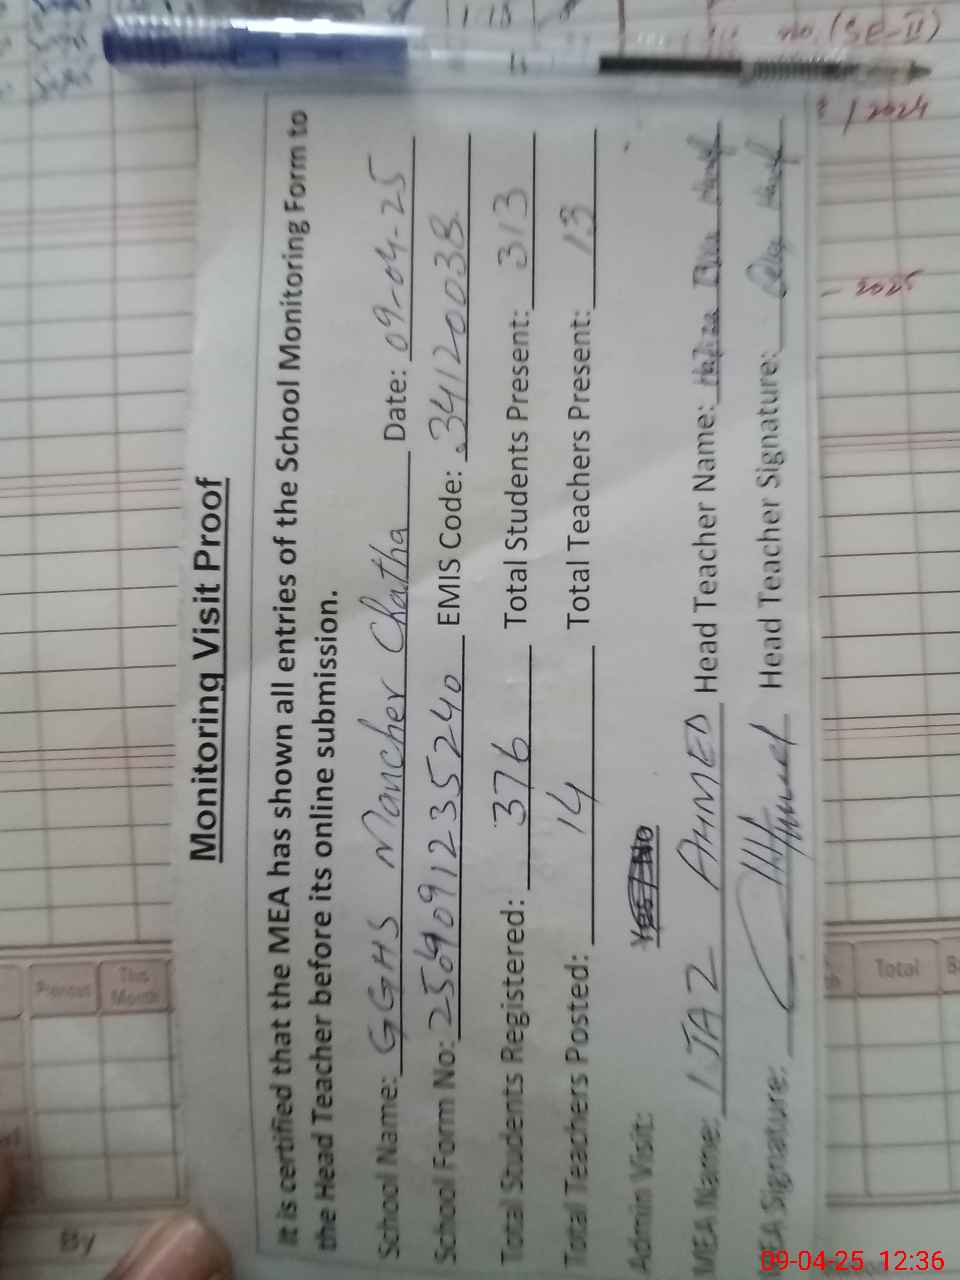 Monitoring Visit Proof
It is certified that the MEA has shown all entries of the School Monitoring Form to
the Head Teacher before its online submission.
School Name: GGHS Mancher Chatha Date: 09-04-25
School Form No: EMIS Code: 34120038
Total Students Registered: 376 Total Students Present: 313
Total Teachers Posted: 14 Total Teachers Present: 13
Admin Visit: Yes / No
MEA Name: IJAZ AHMED Head Teacher Name:
MEA Signature: Head Teacher Signature:
no. (SE-II)
/ 2024
- 2025
Previous
This
Month
Total
By
09-04-25 12:36